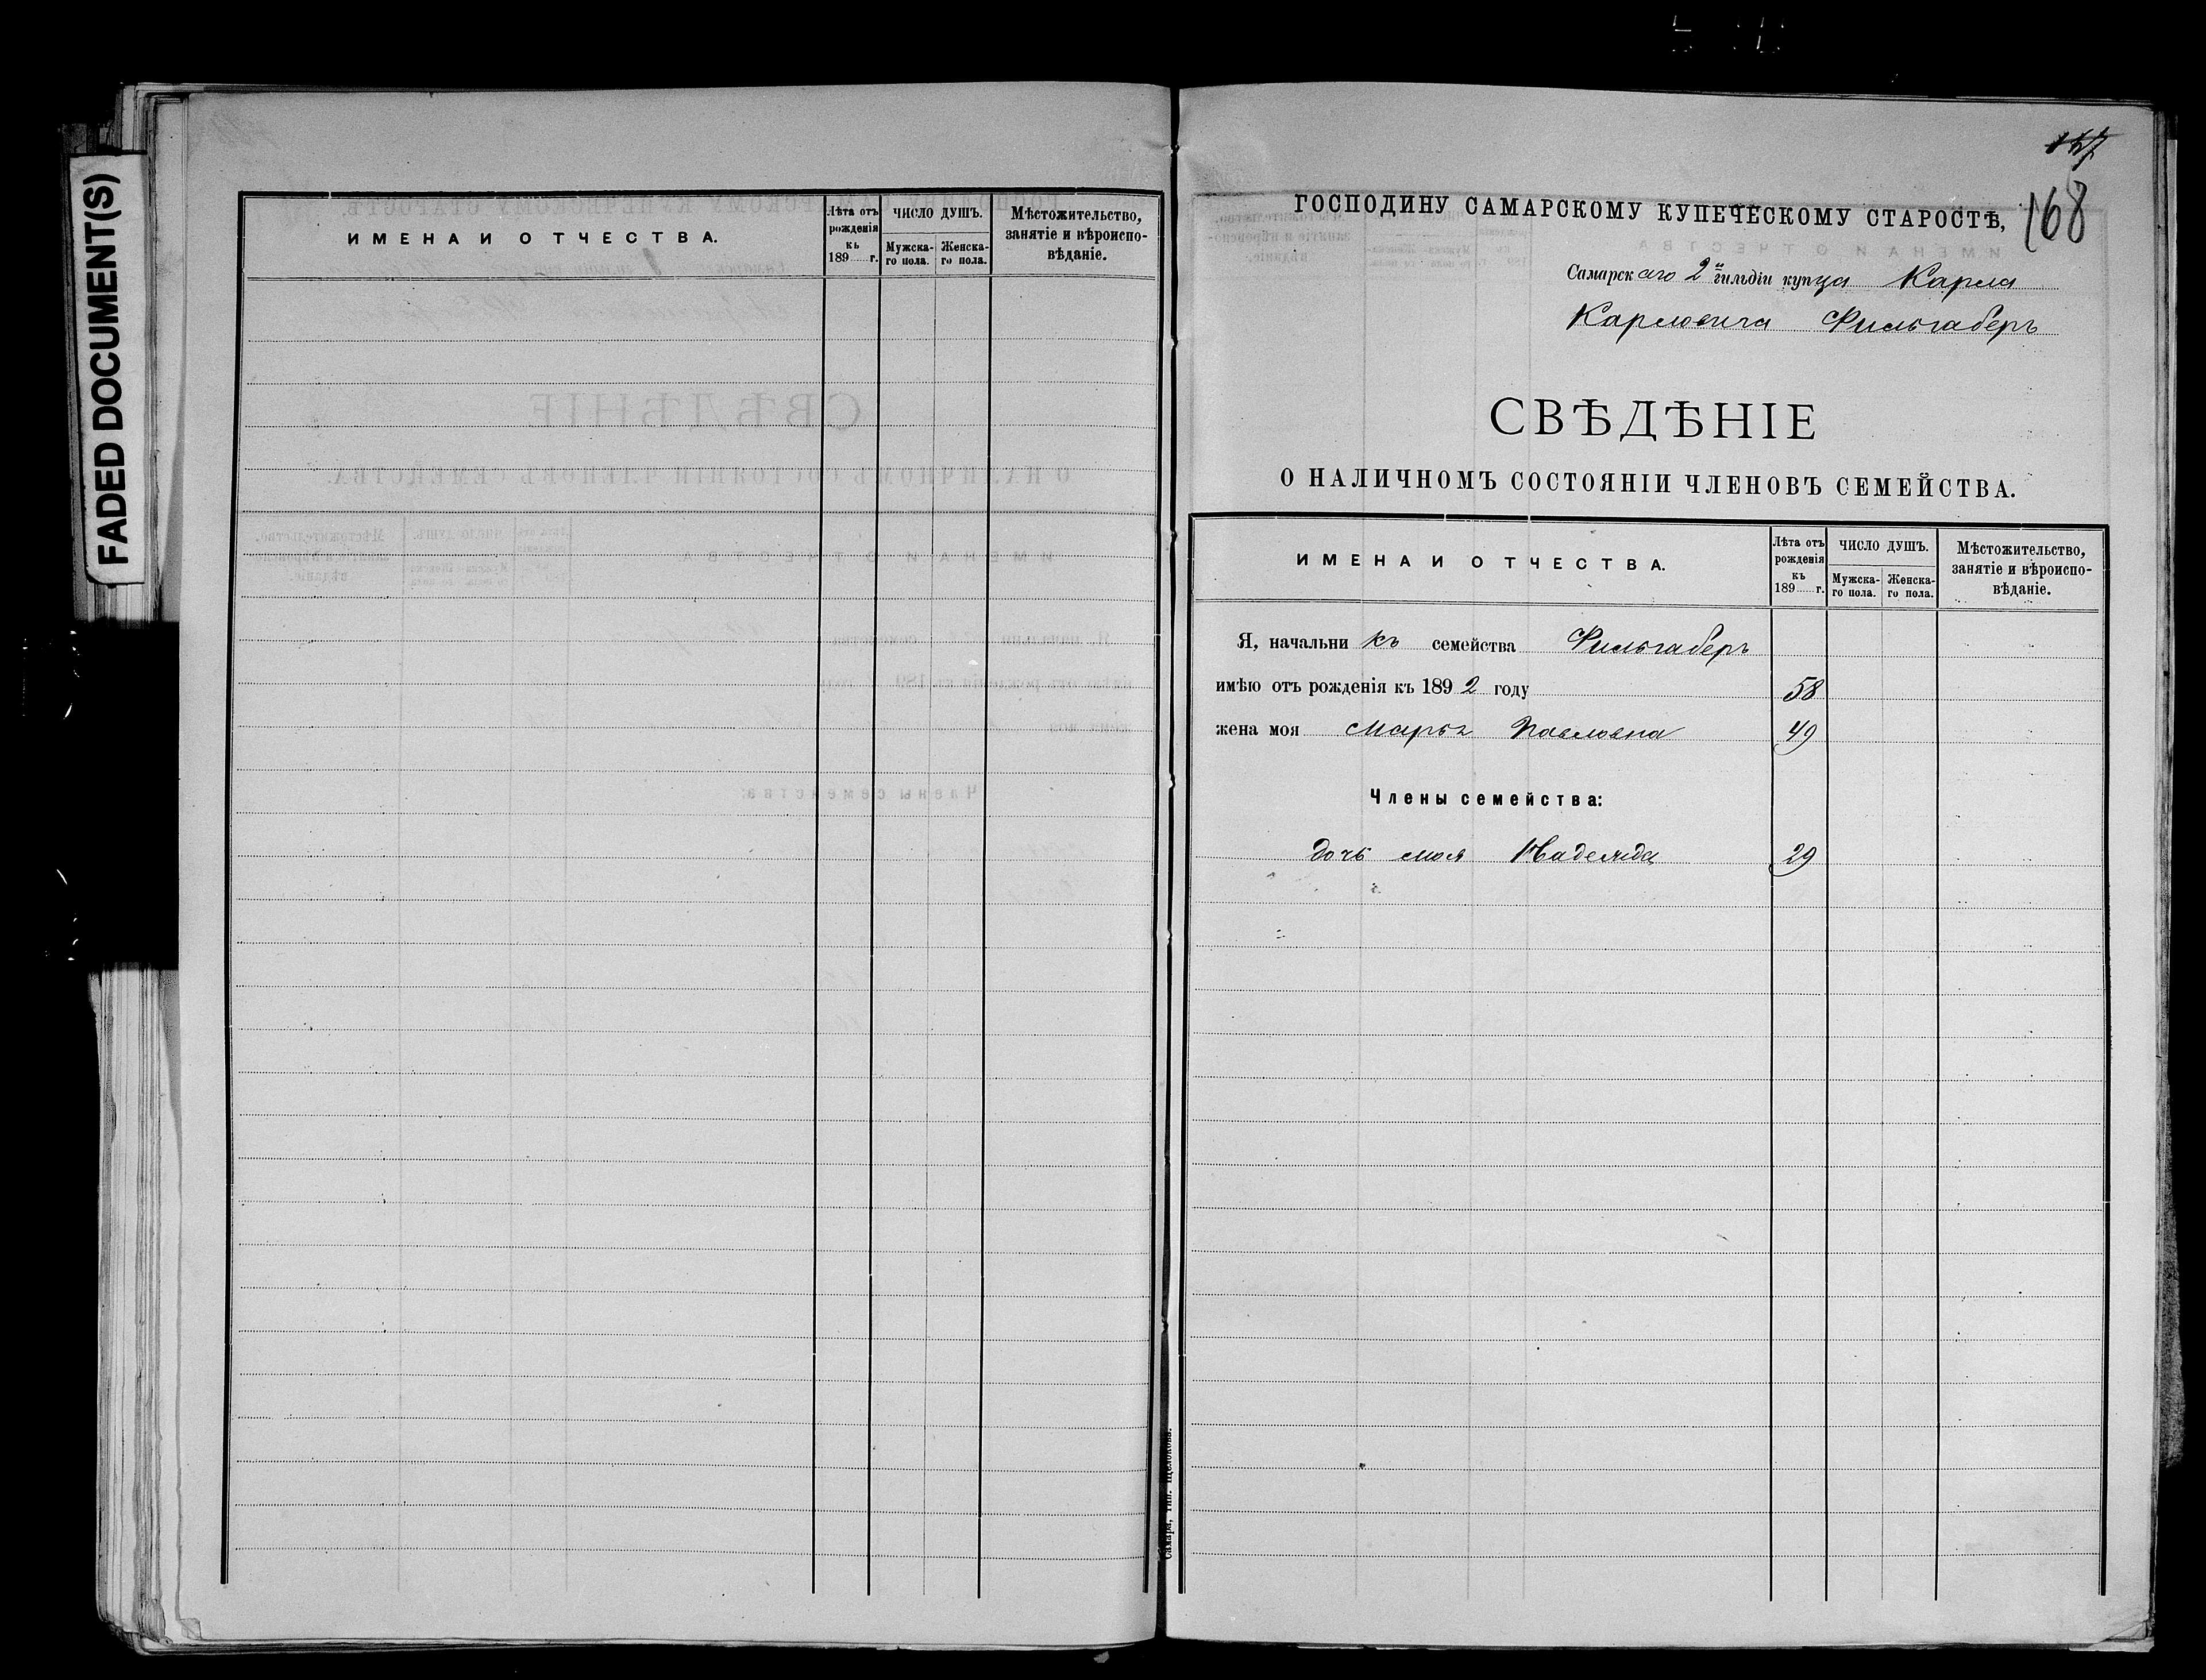 FADED DOCUMENT(S)
ИМЕНА И ОТЧЕСТВА.
Лѣта отъ рожденія къ 189 г.
ЧИСЛО ДУШЪ.
Мужска-го пола.
Женска-го пола.
Мѣстожительство, занятіе и вѣроиспо-вѣданіе.
Самара, Тип. Щелокова.
167
168
ГОСПОДИНУ САМАРСКОМУ КУПЕЧЕСКОМУ СТАРОСТѢ,
Самарскаго 2й гильдіи купца Карла
Карловича Фильгаберъ
СВѢДѢНІЕ
О НАЛИЧНОМЪ СОСТОЯНІИ ЧЛЕНОВЪ СЕМЕЙСТВА.
ИМЕНА И ОТЧЕСТВА.
Лѣта отъ рожденія къ 189 г.
ЧИСЛО ДУШЪ.
Мужска-го пола.
Женска-го пола.
Мѣстожительство, занятіе и вѣроиспо-вѣданіе.
Я, начальникъ семейства Фильгаберъ
имѣю отъ рожденія къ 1892 году 58
жена моя Марья Павловна 49
Члены семейства:
дочь моя Надежда 29